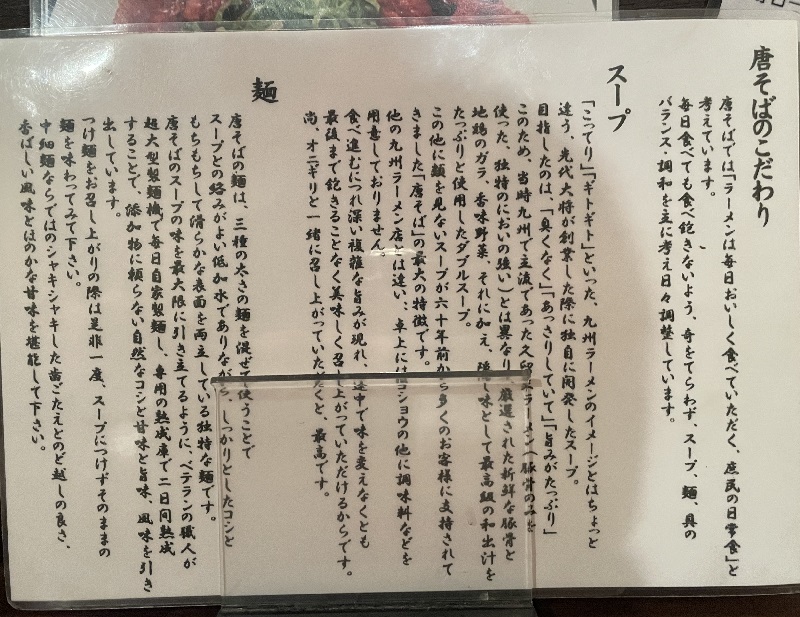 唐そばのこだわり
唐そばでは「ラーメンは毎日おいしく食べていただく、庶民の日常食」と
考えています。
毎日食べても食べ飽きないよう、奇をてらわず、スープ、麺、具の
バランス・調和を主に考え日々調整しています。
スープ
「こってり」「ギトギト」といった、九州ラーメンのイメージとはちょっと
違う、先代大将が創業した際に独自に開発したスープ。
目指したのは、「臭くなく」「あっさりしていて」「旨みがたっぷり」
このため、当時九州で主流であった久留米ラーメン(豚骨のみを
使った、独特のにおいの強い)とは異なり、厳選された新鮮な豚骨と
地鶏のガラ、香味野菜、それに加え、隠し味として最高級の和出汁を
たっぷりと使用したダブルスープ。
この他に類を見ないスープが六十年前から多くのお客様に支持されて
きました「唐そば」の最大の特徴です。
他の九州ラーメン店とは違い、卓上にはコショウの他に調味料などを
用意しておりません。
食べ進むにつれ深い複雑な旨みが現れ、途中で味を変えなくとも
最後まで飽きることなく美味しく召し上がっていただけるからです。
尚、オニギリと一緒に召し上がっていただくと、最高です。
麺
唐そばの麺は、三種の太さの麺を混ぜて使うことで
スープとの絡みがよい低加水でありながら、しっかりとしたコシと
もちもちして滑らかな表面を両立している独特な麺です。
唐そばのスープの味を最大限に引き立てるように、ベテランの職人が
超大型製麺機で毎日自家製麺し、専用の熟成庫で二日間熟成
することで、添加物に頼らない自然なコシと甘味と旨味、風味を引き
出しています。
つけ麺をお召し上がりの際は是非一度、スープにつけずそのままの
麺を味わってみて下さい。
中細麺ならではのシャキシャキした歯ごたえとのど越しの良さ、
香ばしい風味とほのかな甘味を堪能して下さい。